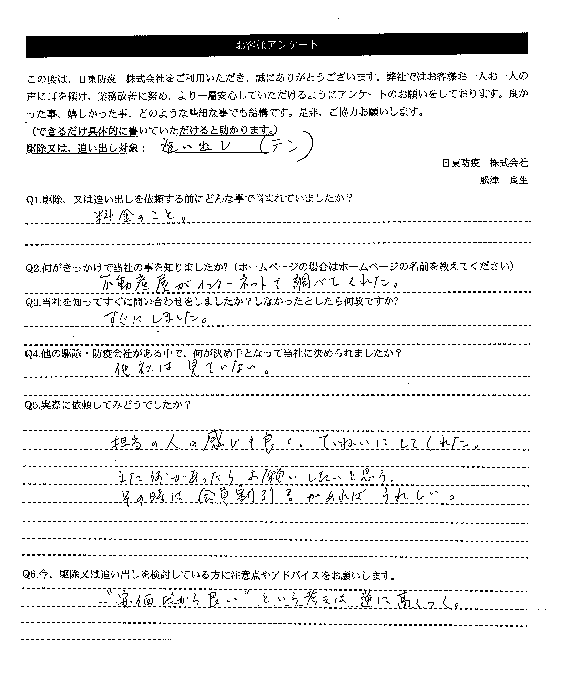 お客様アンケート
この度は、日東防疫 株式会社をご利用いただき、誠にありがとうございます。弊社ではお客様お一人お一人の
声に耳を傾け、業務改善に努め、より一層安心していただけるようにアンケートのお願いをしております。良か
った事、嬉しかった事、どのような些細な事でも結構です。是非、ご協力お願いします。
（できるだけ具体的に書いていただけると助かります。）
駆除又は、追い出し対象： 追い出し （テン）
日東防疫 株式会社
良生
Q1.駆除、又は追い出しを依頼する前にどんな事で悩まれていましたか？
料金のこと。
Q2.何がきっかけで当社の事を知りましたか？（ホームページの場合はホームページの名前を教えてください）
不動産屋がインターネットで調べてくれた。
Q3.当社を知ってすぐに問い合わせをしましたか？しなかったとしたら何故ですか？
すぐにしました。
Q4.他の駆除・防疫会社がある中で、何が決め手となって当社に決められましたか？
他社は見ていない。
Q5.実際に依頼してみてどうでしたか？
担当の人の感じも良く、ていねいにしてくれた。
また何かあったらお願いしたいと思う。
その時は会員割引き等があればうれしい。
Q6.今、駆除又は追い出しを検討している方に注意点やアドバイスをお願いします。
"安価だから良い"という考えは逆に高くつく。